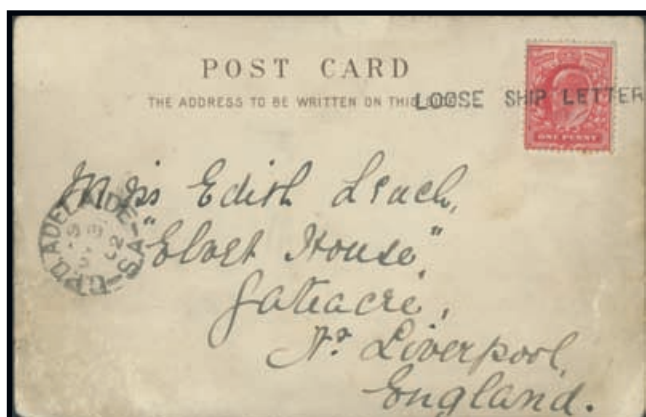 POST CARD
THE ADDRESS TO BE WRITTEN ON THIS
LOOSE SHIP LETTER
ONE PENNY
Miss Edith Leach,
"Elvet House"
Gateacre,
Nr Liverpool,
England.
G.P.O. ADELAIDE
S.A